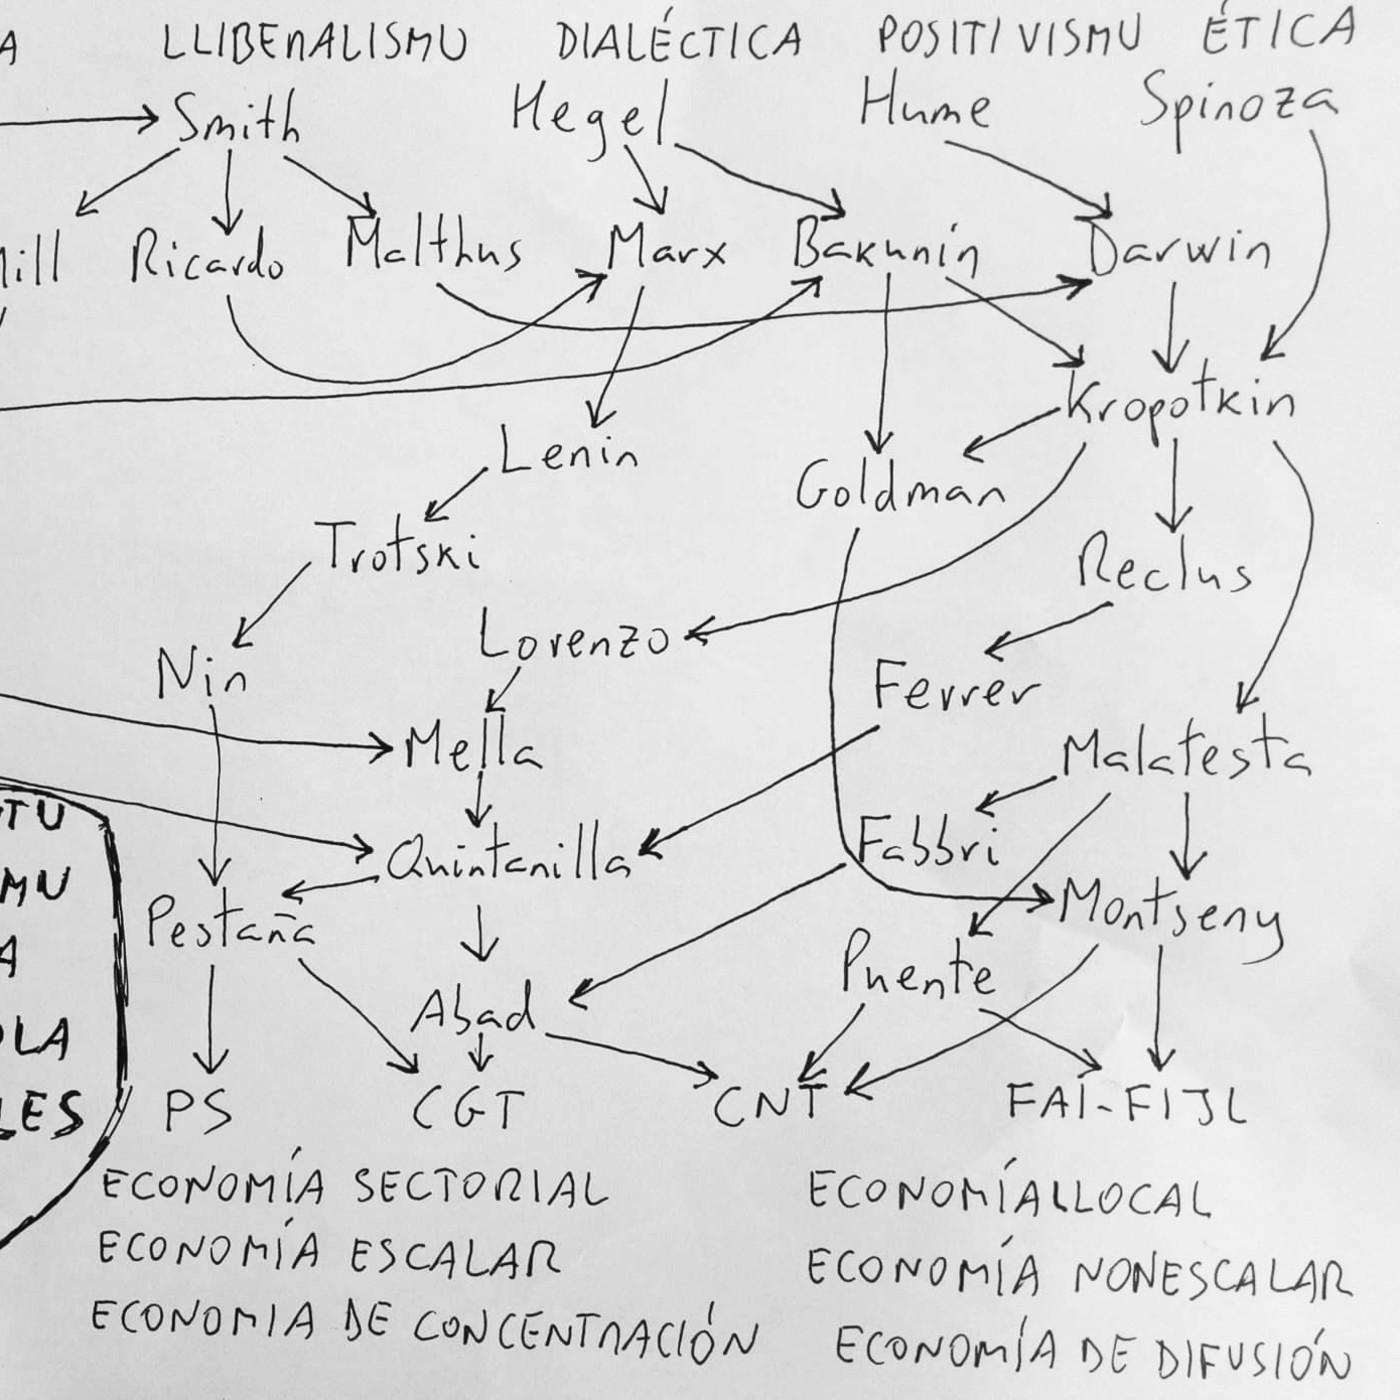 A LLIBERALISMU DIALÉCTICA POSITIVISMU ÉTICA
Smith Hegel Hume Spinoza
Mill Ricardo Malthus Marx Bakunín Darwin
Kropotkin
Lenin
Goldman
Trotski
Reclus
Lorenzo
Nin
Ferrer
Mella
Malatesta
TU
Quintanilla
Fabbri
MU
Pestaña
Montseny
A
Puente
Abad
OLA
LES
PS CGT CNT FAI-FIJL
ECONOMÍA SECTORIAL
ECONOMÍA LLOCAL
ECONOMÍA ESCALAR
ECONOMÍA NONESCALAR
ECONOMIA DE CONCENTRACIÓN
ECONOMÍA DE DIFUSIÓN